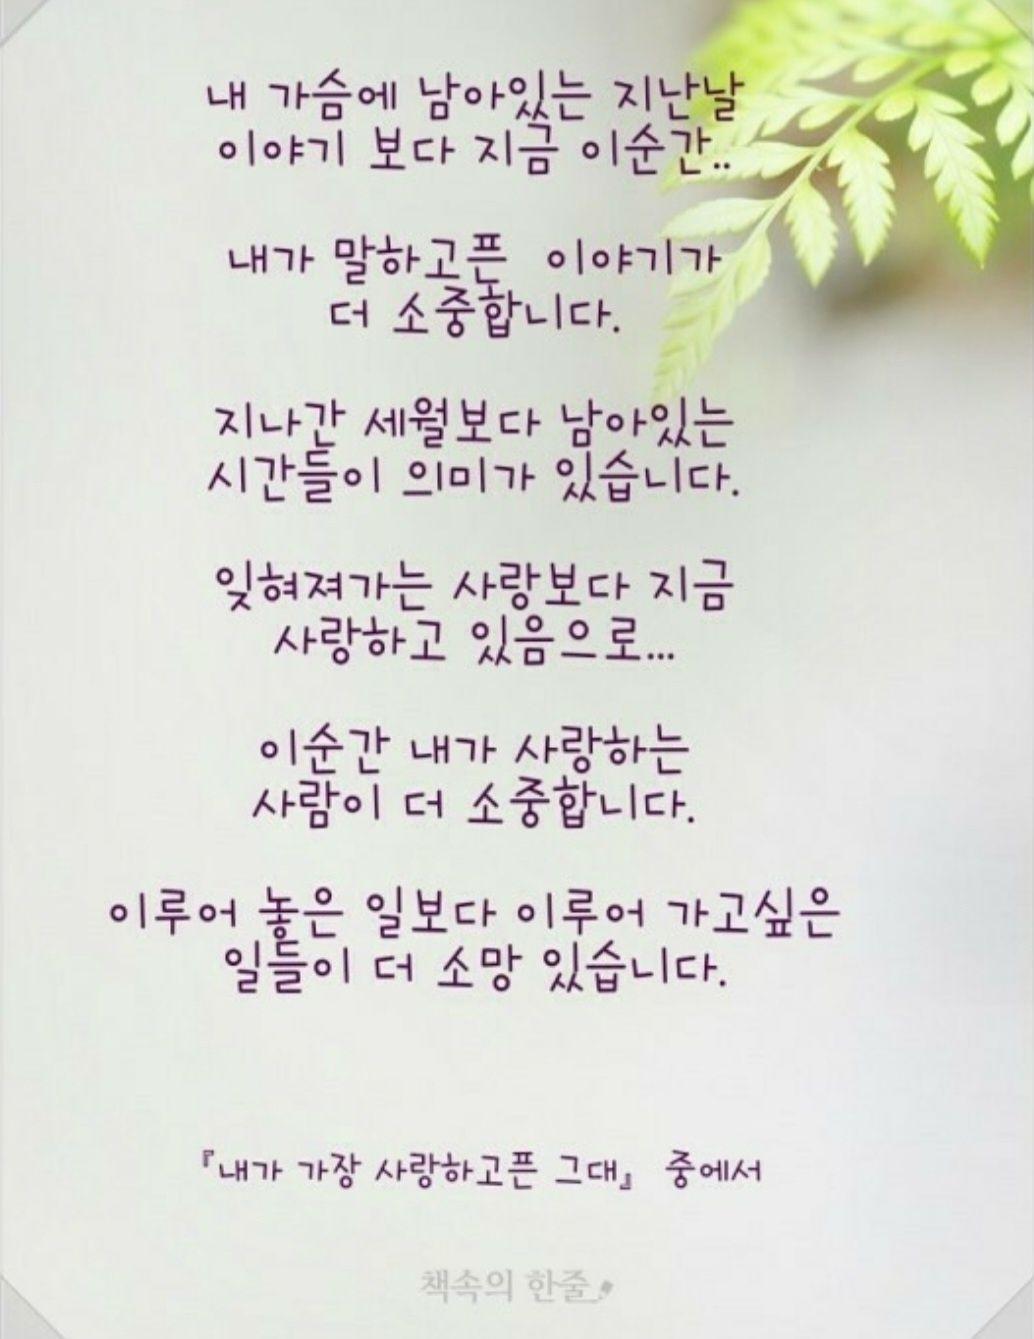 내 가슴에 남아있는 지난날
이야기 보다 지금 이순간..
내가 말하고픈 이야기가
더 소중합니다.
지나간 세월보다 남아있는
시간들이 의미가 있습니다.
잊혀져가는 사랑보다 지금
사랑하고 있음으로...
이순간 내가 사랑하는
사람이 더 소중합니다.
이루어 놓은 일보다 이루어 가고싶은
일들이 더 소망 있습니다.
『내가 가장 사랑하고픈 그대』 중에서
책속의 한줄